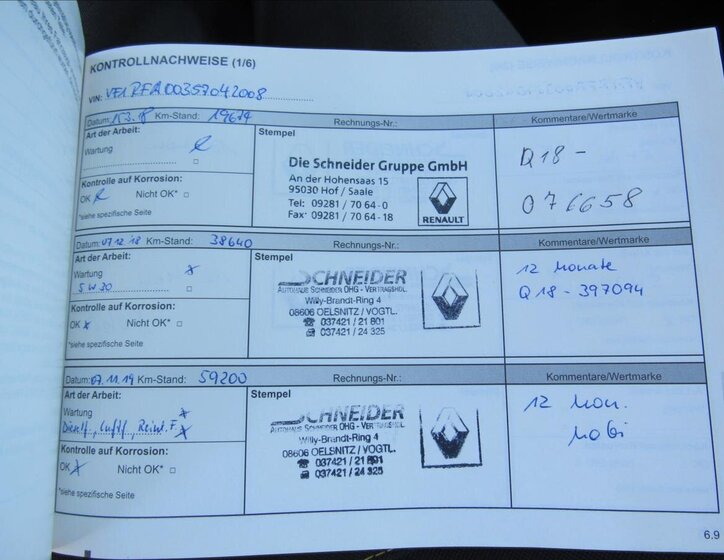 KONTROLLNACHWEISE (1/6)
VIN: VF1RFA00357042008
Datum: 15.3.18 Km-Stand: 19614 Rechnungs-Nr.: Kommentare/Wertmarke
Art der Arbeit: Stempel
Wartung
Die Schneider Gruppe GmbH
An der Hohensaas 15
95030 Hof / Saale
Tel: 09281 / 70 64-0
Fax: 09281 / 70 64-18
RENAULT
Q18 -
076658
Kontrolle auf Korrosion:
OK Nicht OK* □
*siehe spezifische Seite
Datum: 07 12 18 Km-Stand: 38640 Rechnungs-Nr.: Kommentare/Wertmarke
Art der Arbeit: Stempel
Wartung x
5W30
SCHNEIDER
AUTOHAUS SCHNEIDER OHG - VERTRAGSHDL.
Willy-Brandt-Ring 4
08606 OELSNITZ / VOGTL.
☎ 037421 / 21 801
037421 / 24 325
12 Monate
Q18 - 397094
Kontrolle auf Korrosion:
OK x Nicht OK* □
*siehe spezifische Seite
Datum: 07.11.19 Km-Stand: 59200 Rechnungs-Nr.: Kommentare/Wertmarke
Art der Arbeit: Stempel
Wartung x
Dieself., Luftf., Rein.F x
SCHNEIDER
AUTOHAUS SCHNEIDER OHG - VERTRAGSHDL.
Willy-Brandt-Ring 4
08606 OELSNITZ / VOGTL.
☎ 037421 / 21 801
037421 / 24 325
12 Mon.
Mobi
Kontrolle auf Korrosion:
OK x Nicht OK* □
*siehe spezifische Seite
6.9